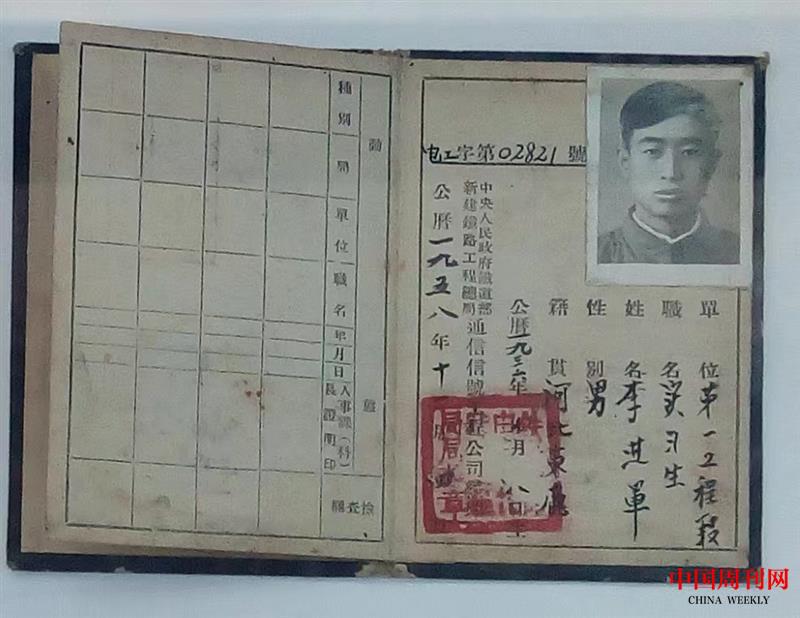 电工字第02821號
單位 第一工程段
職名 实习生
姓名 李
性別 男
籍貫 河北
公曆一九三六年 月 日生
中央人民政府鐵道部
新建鐵路工程總局
通信信號工程公司
公曆一九五八年十月
動態
種別
局
單位
職名
年月日
人事課(科)
長證明印
檢查欄
中国周刊网
CHINA WEEKLY